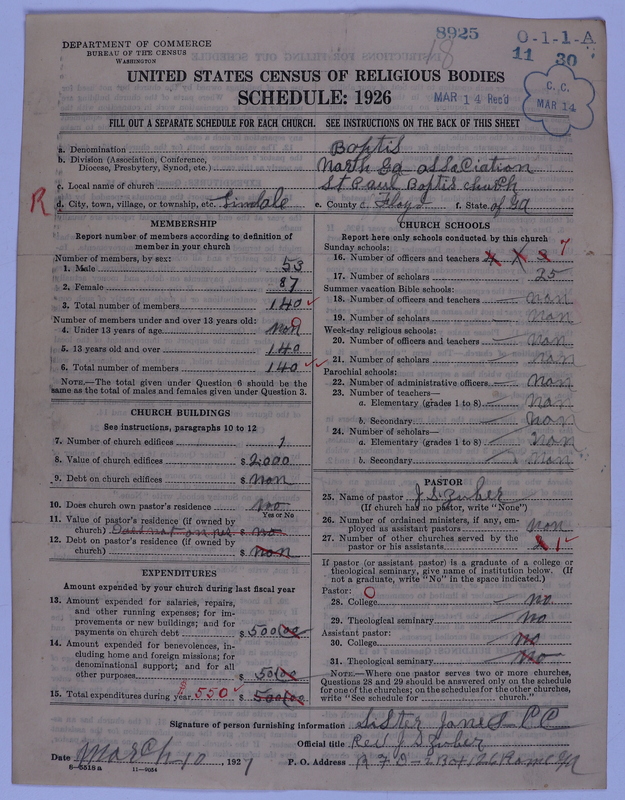 8925
18
0-1-1-A
11 30
DEPARTMENT OF COMMERCE
BUREAU OF THE CENSUS
WASHINGTON
UNITED STATES CENSUS OF RELIGIOUS BODIES
SCHEDULE: 1926
MAR 14 Rec'd
C. C.
MAR 14
FILL OUT A SEPARATE SCHEDULE FOR EACH CHURCH. SEE INSTRUCTIONS ON THE BACK OF THIS SHEET
a. Denomination Baptis
b. Division (Association, Conference, Diocese, Presbytery, Synod, etc.) North Ga association
c. Local name of church St Paul Baptis church
R d. City, town, village, or township, etc. Lindale e. County c. Floyd f. State of Ga
MEMBERSHIP
Report number of members according to definition of
member in your church
Number of members, by sex:
1. Male 53
2. Female 87
3. Total number of members 140
Number of members under and over 13 years old:
4. Under 13 years of age non 0
5. 13 years old and over 140
6. Total number of members 140
NOTE.—The total given under Question 6 should be
same as the total of males and females given under Question 3.
CHURCH BUILDINGS
See instructions, paragraphs 10 to 12
7. Number of church edifices 1
8. Value of church edifices $ 2000
9. Debt on church edifices $ non
10. Does church own pastor's residence no
Yes or No
11. Value of pastor's residence (if owned by
church) Does not own $ no
12. Debt on pastor's residence (if owned by
church) $ non
EXPENDITURES
Amount expended by your church during last fiscal year
13. Amount expended for salaries, repairs,
and other running expenses; for im-
provements or new buildings; and for
payments on church debt $ 500 00
14. Amount expended for benevolences, in-
cluding home and foreign missions; for
denominational support; and for all
other purposes $ 50 00
15. Total expenditures during year $ 550 $ 500 00
CHURCH SCHOOLS
Report here only schools conducted by this church
Sunday schools:
16. Number of officers and teachers 7
17. Number of scholars 25
Summer vacation Bible schools:
18. Number of officers and teachers non
19. Number of scholars non
Week-day religious schools:
20. Number of officers and teachers non
21. Number of scholars non
Parochial schools:
22. Number of administrative officers non
23. Number of teachers—
a. Elementary (grades 1 to 8) non
b. Secondary non
24. Number of scholars—
a. Elementary (grades 1 to 8) non
b. Secondary non
PASTOR
25. Name of pastor J. S. Guber
(If church has no pastor, write "None")
26. Number of ordained ministers, if any, em-
ployed as assistant pastors non
27. Number of other churches served by the
pastor or his assistants 1
If pastor (or assistant pastor) is a graduate of a college or
theological seminary, give name of institution below. (If
not a graduate, write "No" in the space indicated.)
Pastor: 0
28. College no
29. Theological seminary no
Assistant pastor:
30. College no
31. Theological seminary no
NOTE.—Where one pastor serves two or more churches,
Questions 28 and 29 should be answered only on the schedule
for one of the churches; on the schedules for the other churches,
write "See schedule for church."
Signature of person furnishing information Sister Janes C C
Official title Rev J S Guber
Date March 10, 1927 P. O. Address R F D - 2 Box 126 Rome Ga
8—5518 a 11—9054